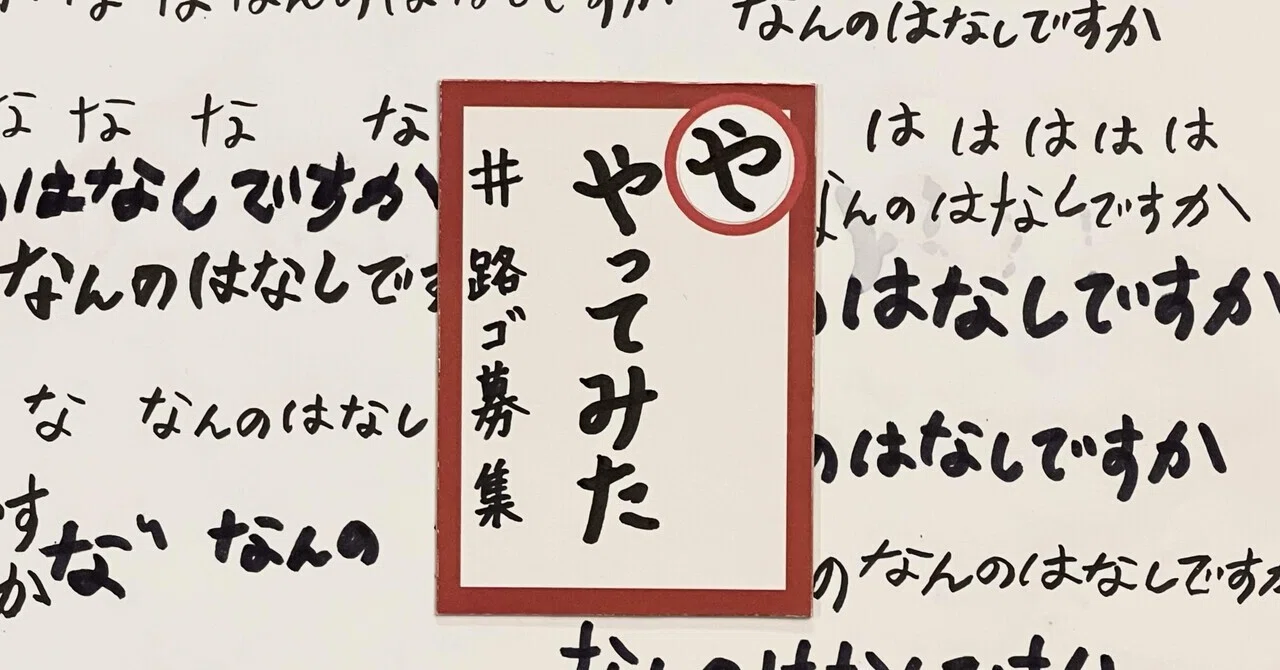 なんのはなしですか
な な な な
はなしですか
なんのはなしで
な なんのはなし
す
か
な なんの
や
やってみた
井 路ゴ募集
は は は は は
んのはなしですか
はなしですか
のはなしですか
の なんのはなしですか
なんのはなしですか